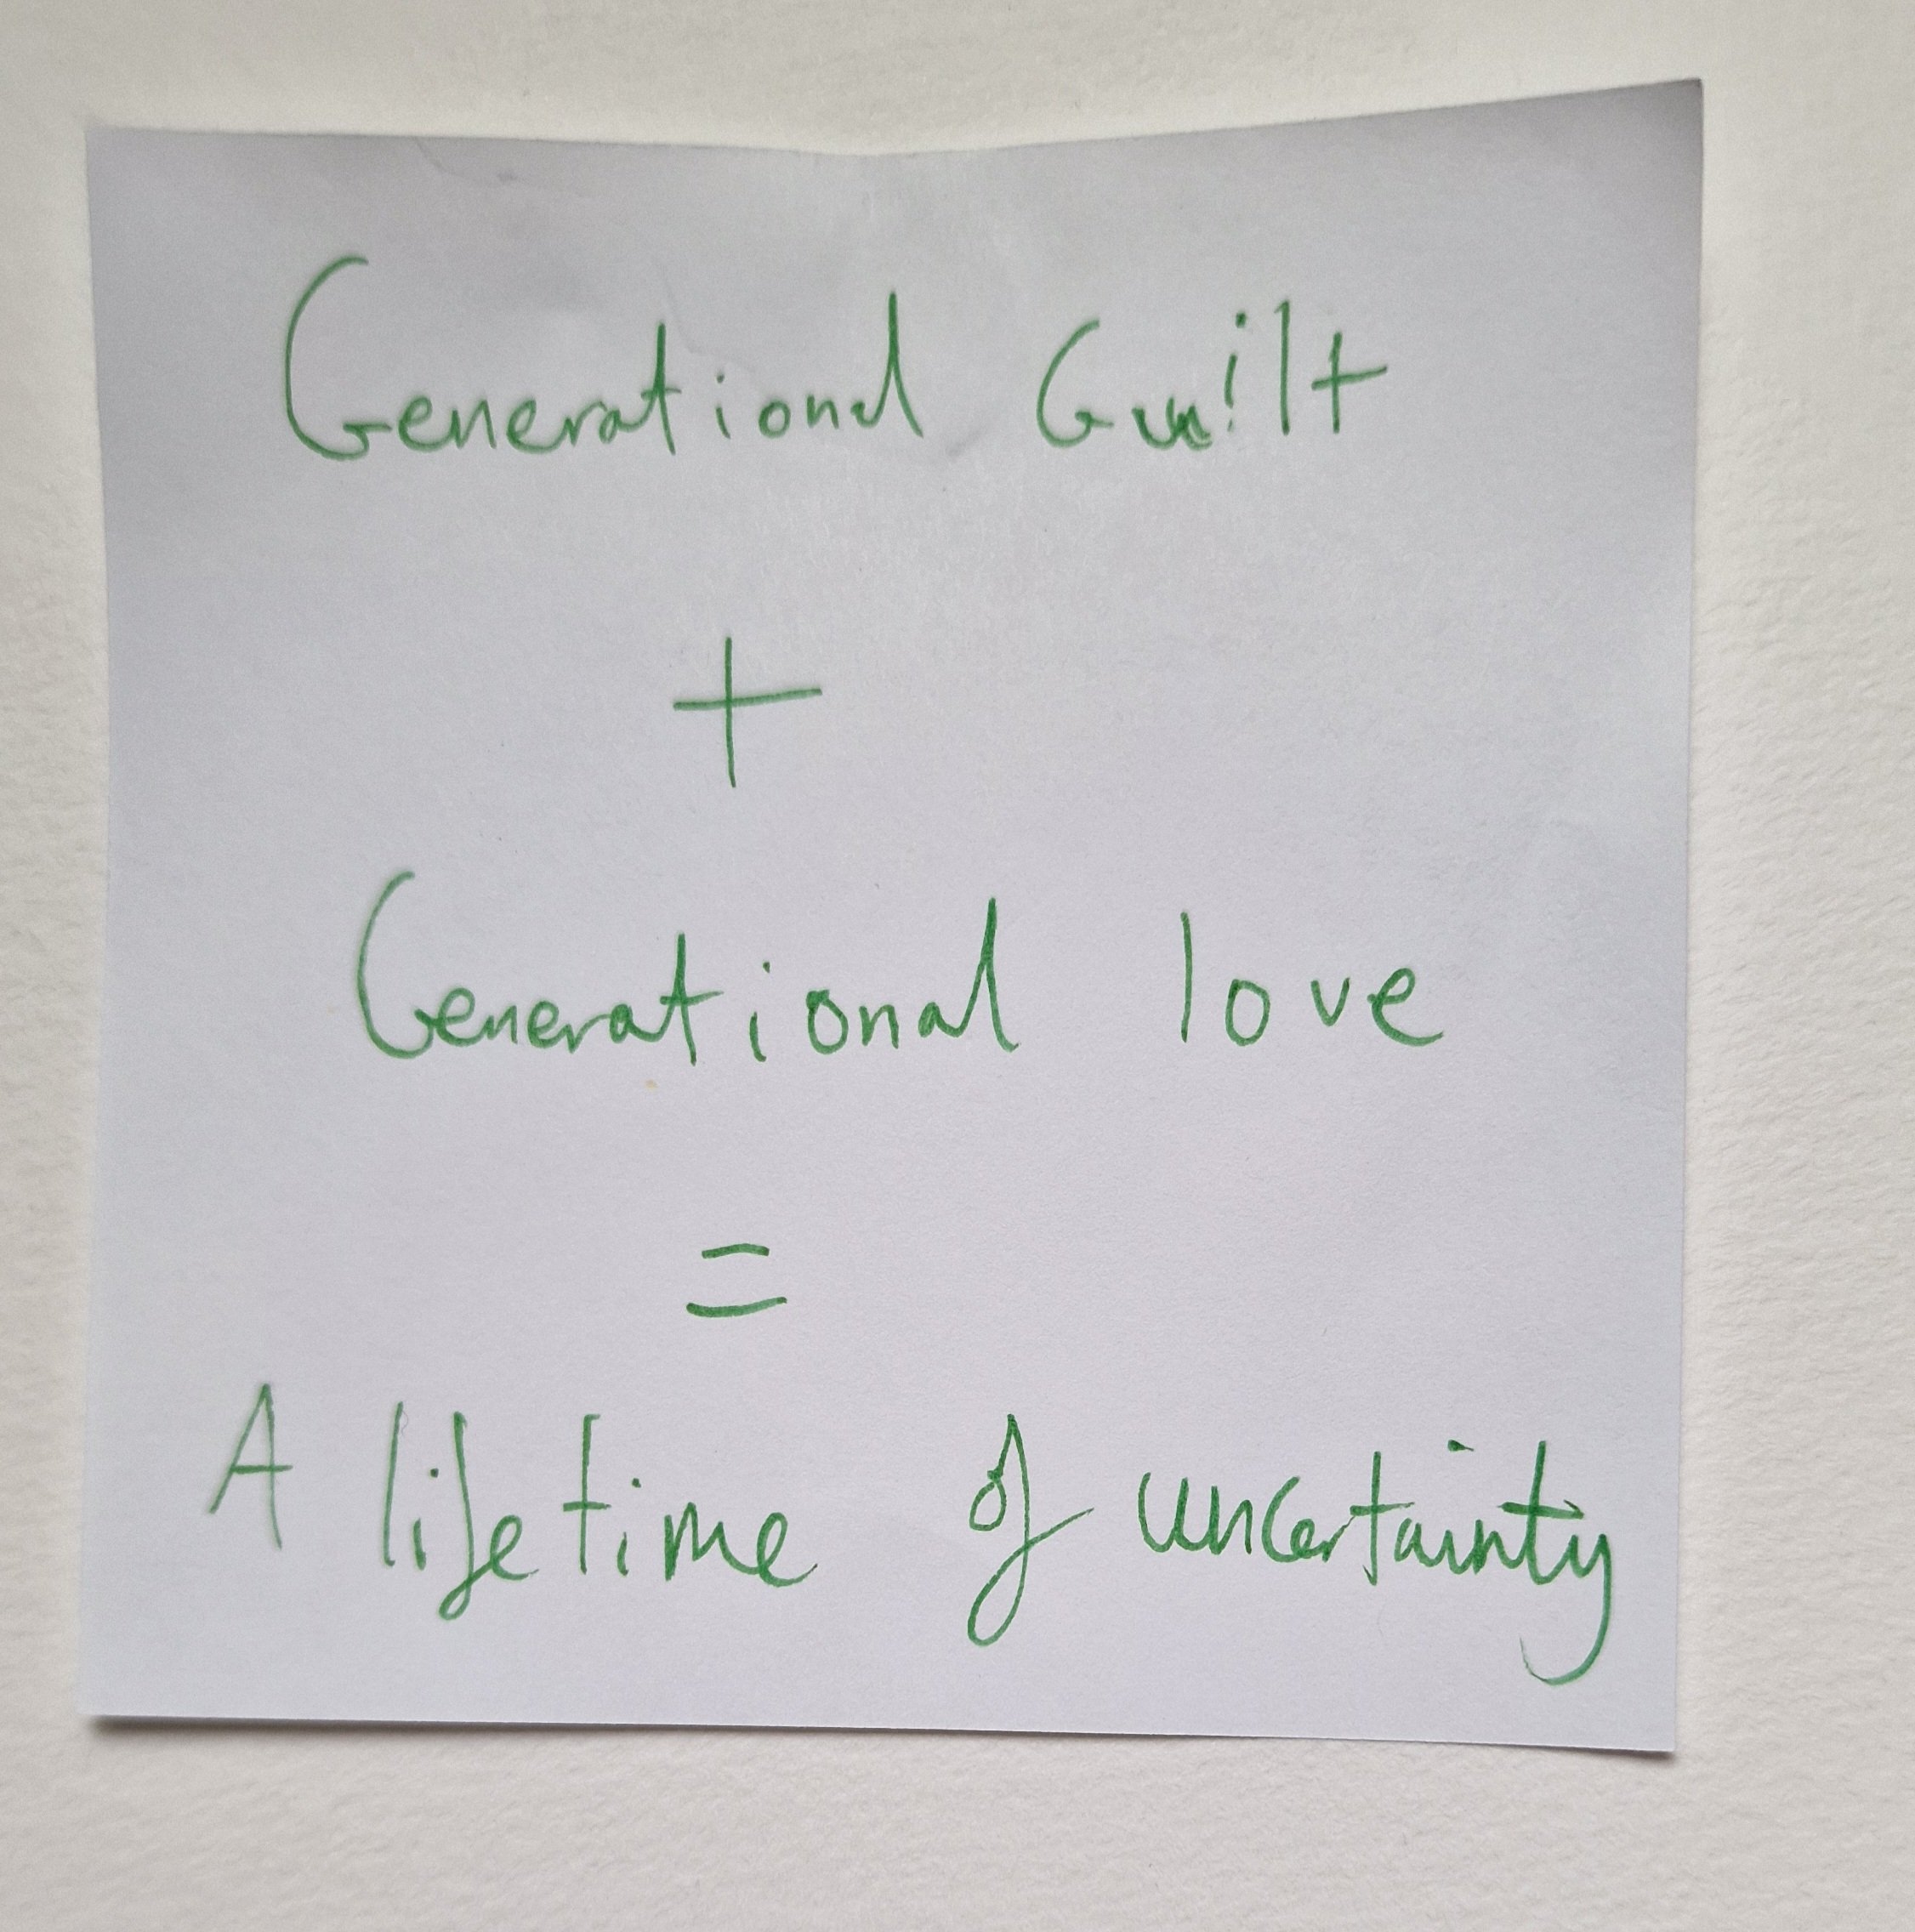 Generational Guilt
+
Generational love
=
A lifetime of uncertainty